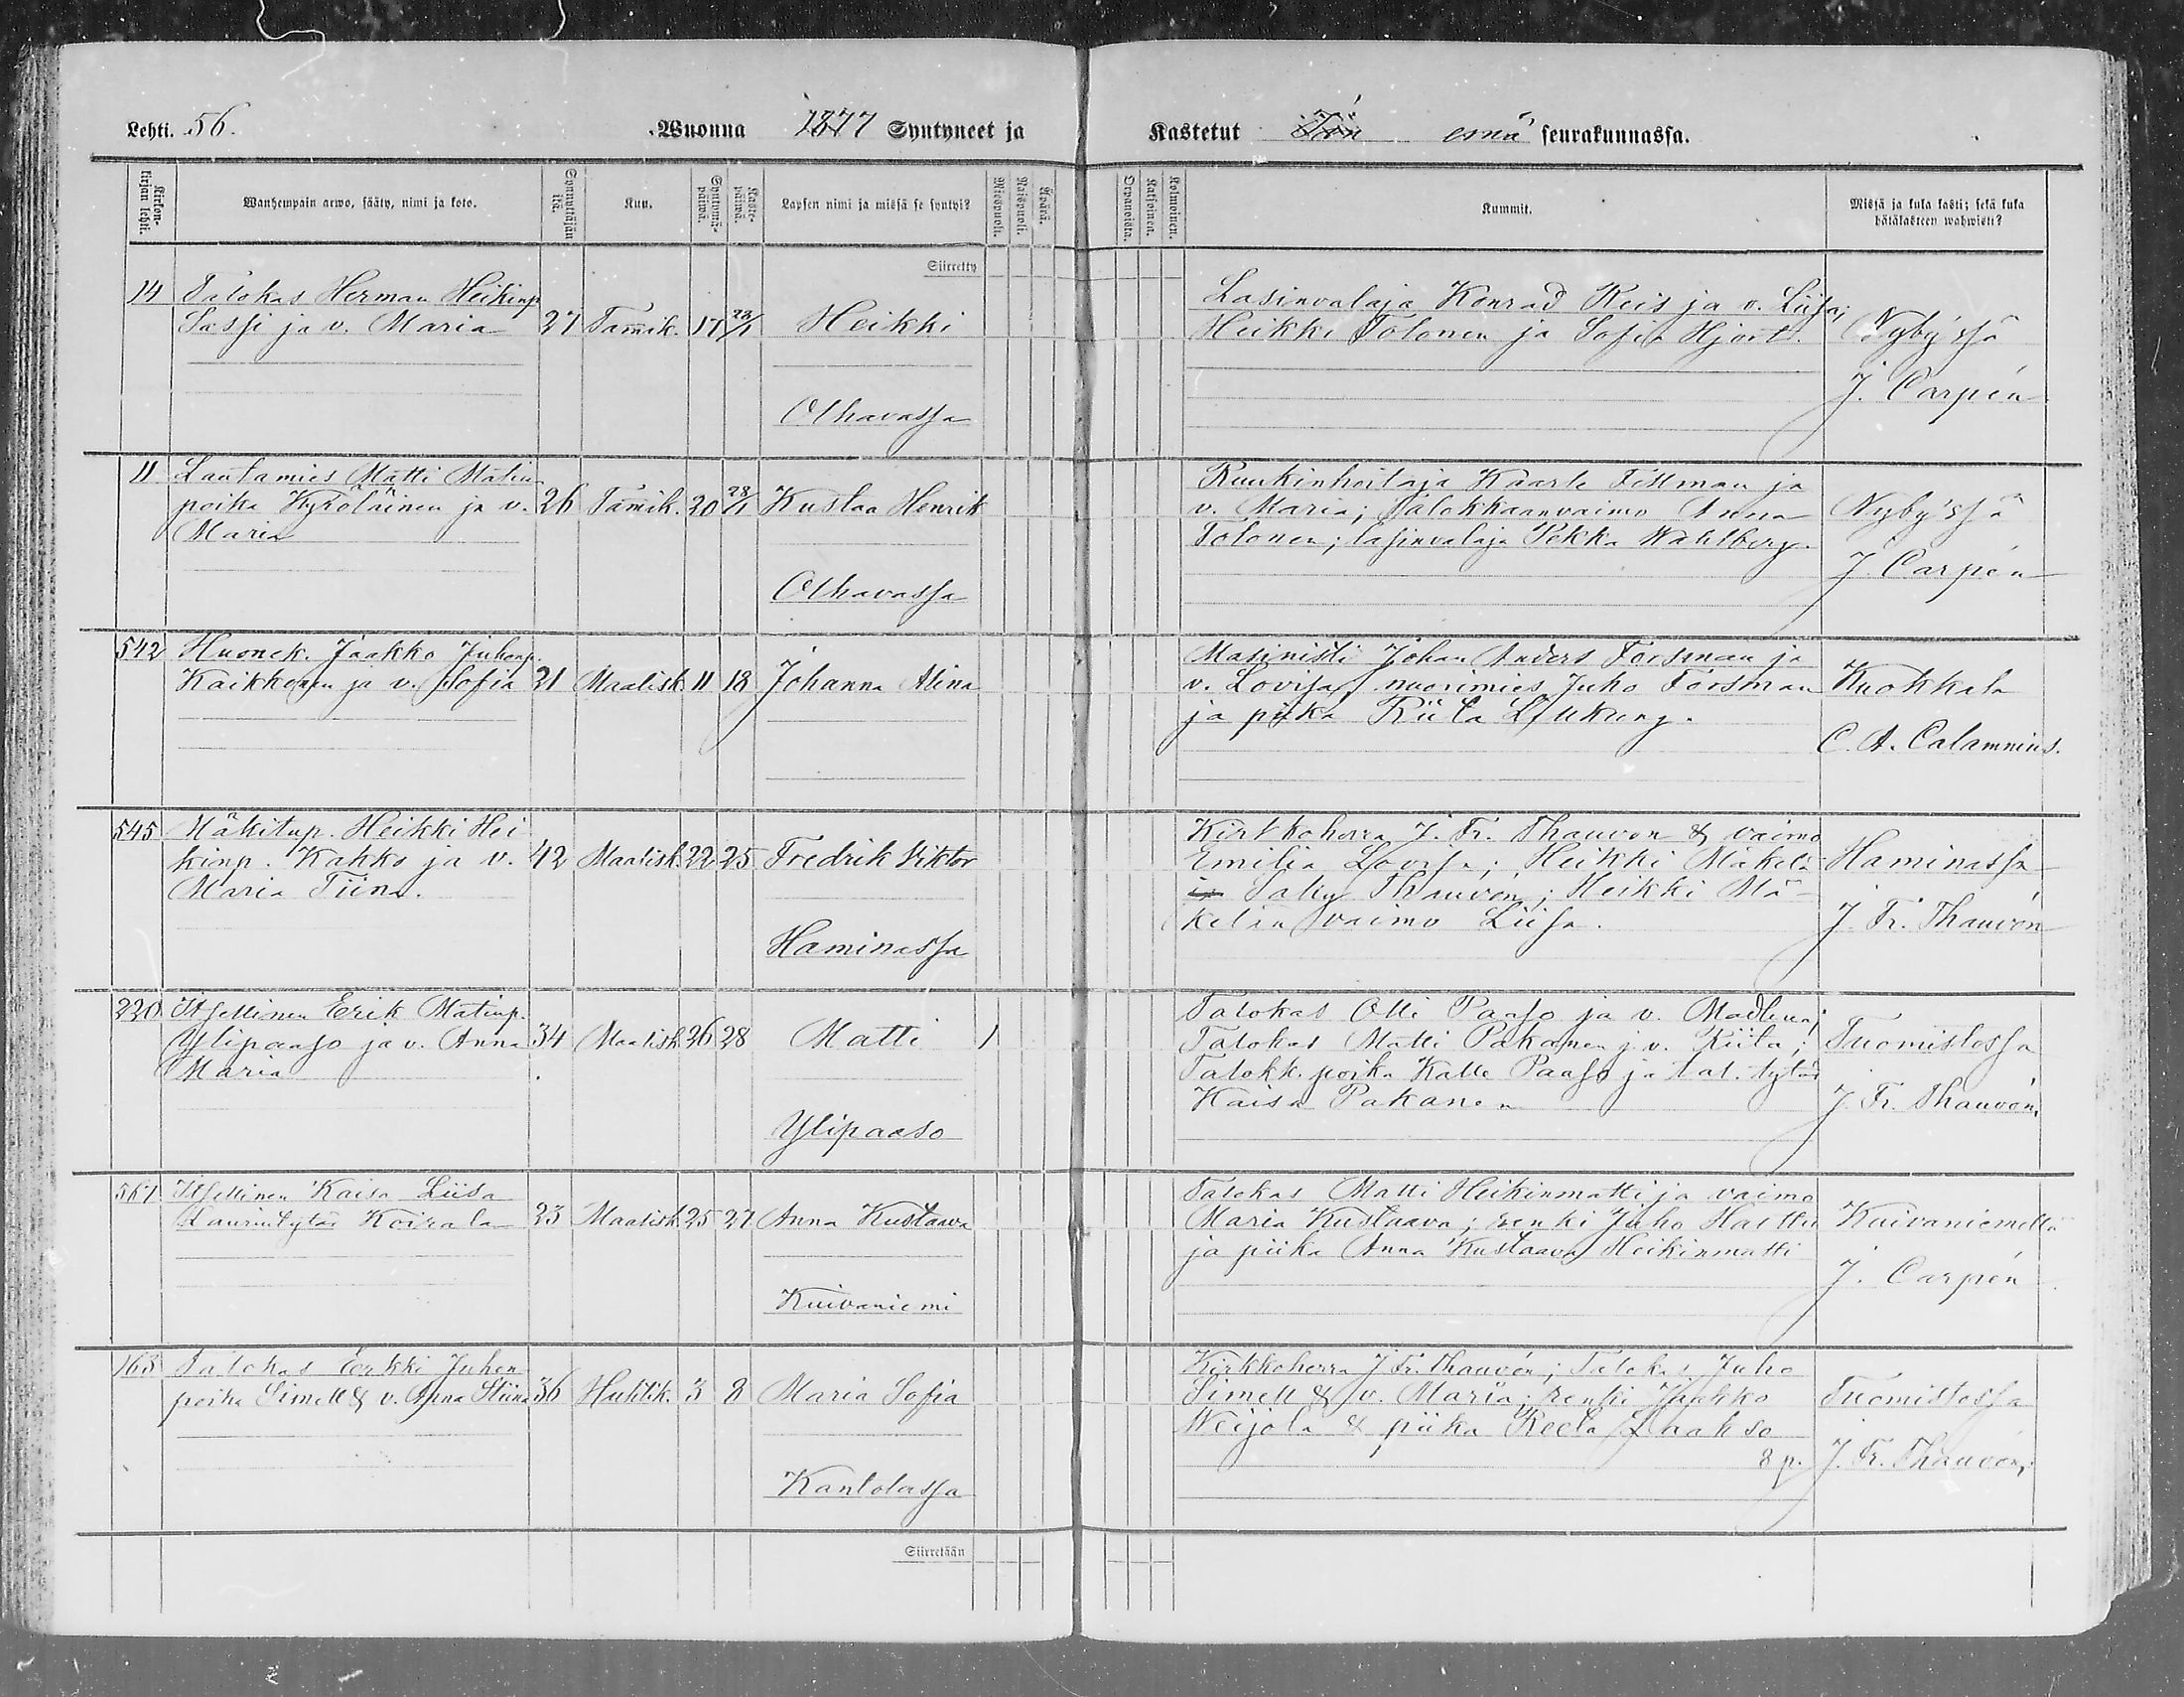 Lehti. 56.
Wuonna 1877 Syntyneet ja
Kastetut Iin emä seurakunnassa.
Kirkon-kirjan lehti.
Wanhempain arwo, sääty, nimi ja koto.
Synnyttäjän ikä.
Kuu.
Syntymä-päiwä.
Kaste-päiwä.
Lapsen nimi ja missä se syntyi?
Miespuoli.
Naispuoli.
Äpärä.
Orpanoista.
Kaksoinen.
Kolmoinen.
Kummit.
Missä ja kuka kasti; sekä kuka
hätäkasteen wahwisti?
Siirretty
14 Talokas Herman Heikinp
Sassi ja v. Maria 27 Tamik. 17 28/1 Heikki
Olhavassa
Lasinvalaja Konrad Reis ja v. Liisa;
Heikki Tolonen ja Sofia Hjort.
Nyby'ssä
J. Carpén
11 Lautamies Matti Matin
poika Kyröläinen ja v. 26 Tamik. 20 28/1 Kustaa Henrik
Maria
Olhavassa
Ruukinhoitaja Kaarle Fellman ja
v. Maria; Talokkaanvaimo Anna
Tolonen; lasinvalaja Pekka Wahlberg.
Nyby'ssä
J. Carpén
542 Huonek. Jaakko Juhonp.
Kaikkonen ja v. Sofia 21 Maalisk. 11 18 Johanna Alina
Masinisti Johan Anders Forsman ja
v. Lovisa, nuorimies Juho Forsman
ja piika Riita
Kuokkala
C. A. Calamnius.
545 Mäkitup. Heikki Hei
kinp. Kakko ja v. 42 Maalisk. 22 25 Fredrik Viktor
Maria Tiina.
Haminassa
Kirkkoherra J. Fr. Thauvon & vaimo
Emilia Lovisa; Heikki Mäkelä
Saky Thauvón; Heikki Mä-
kelän vaimo Liisa.
Haminassa
J. Fr. Thauvón
220 Itsellinen Erik Matinp.
Ylipaaso ja v. Anna 34 Maalisk. 26 28 Matti 1
Maria
Ylipaaso
Talokas Olli Paaso ja v. Madlena;
Talokas Matti Pakanen j. v. Riita;
Talokk. poika Kalle Paaso ja tal. tytär
Kaisa Pakanen
Tuomistossa
J. Fr. Thauvón,
561 Itsellinen Kaisa Liisa
Laurintytär Koirala 23 Maalisk. 25 27 Anna Kustaava
Kuivaniemi
Talokas Matti Heikinmatti ja vaimo
Maria Kustaava; renki Juho Hattu
ja piika Anna Kustaava Heikinmatti
Kuivaniemellä
J. Carpén
163 Talokas Erkki Juhon
poika Simell & v. Anna Stiina 36 Huhtik. 3 8 Maria Sofia
Kantolassa
Kirkkoherra J. Fr. Thauvón; Talokas Juho
Simell & v. Maria; renki Jaakko
Weijola & piika Reeta Laakso
8 p.
Tuomistossa
J. Fr. Thauvón,
Siirretään